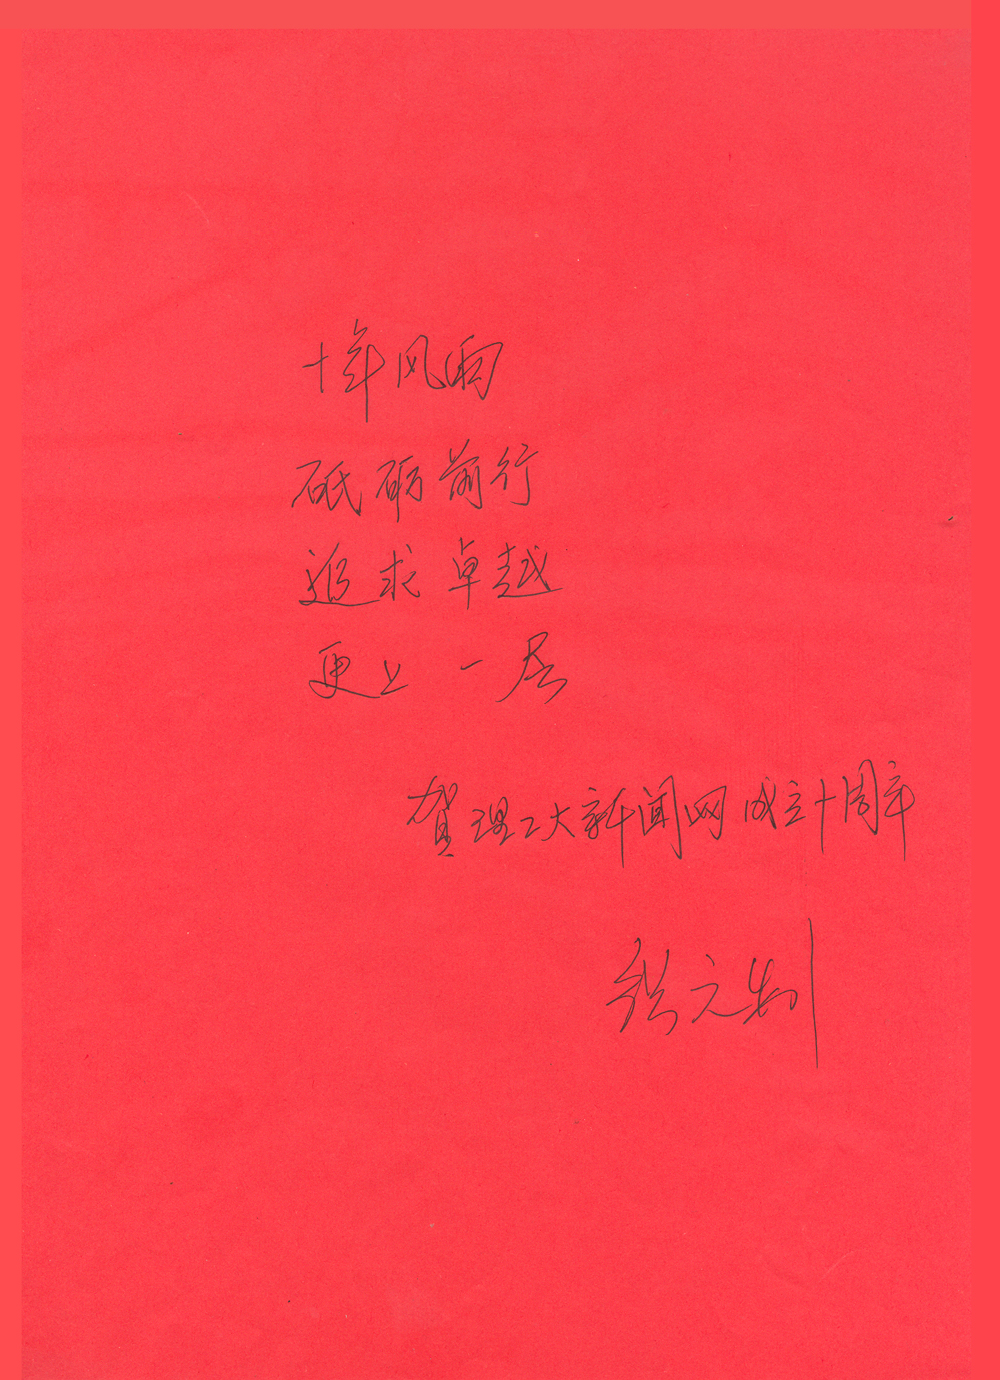 十年风雨
砥砺前行
追求卓越
更上一层
贺理工大新闻网成立十周年
张元